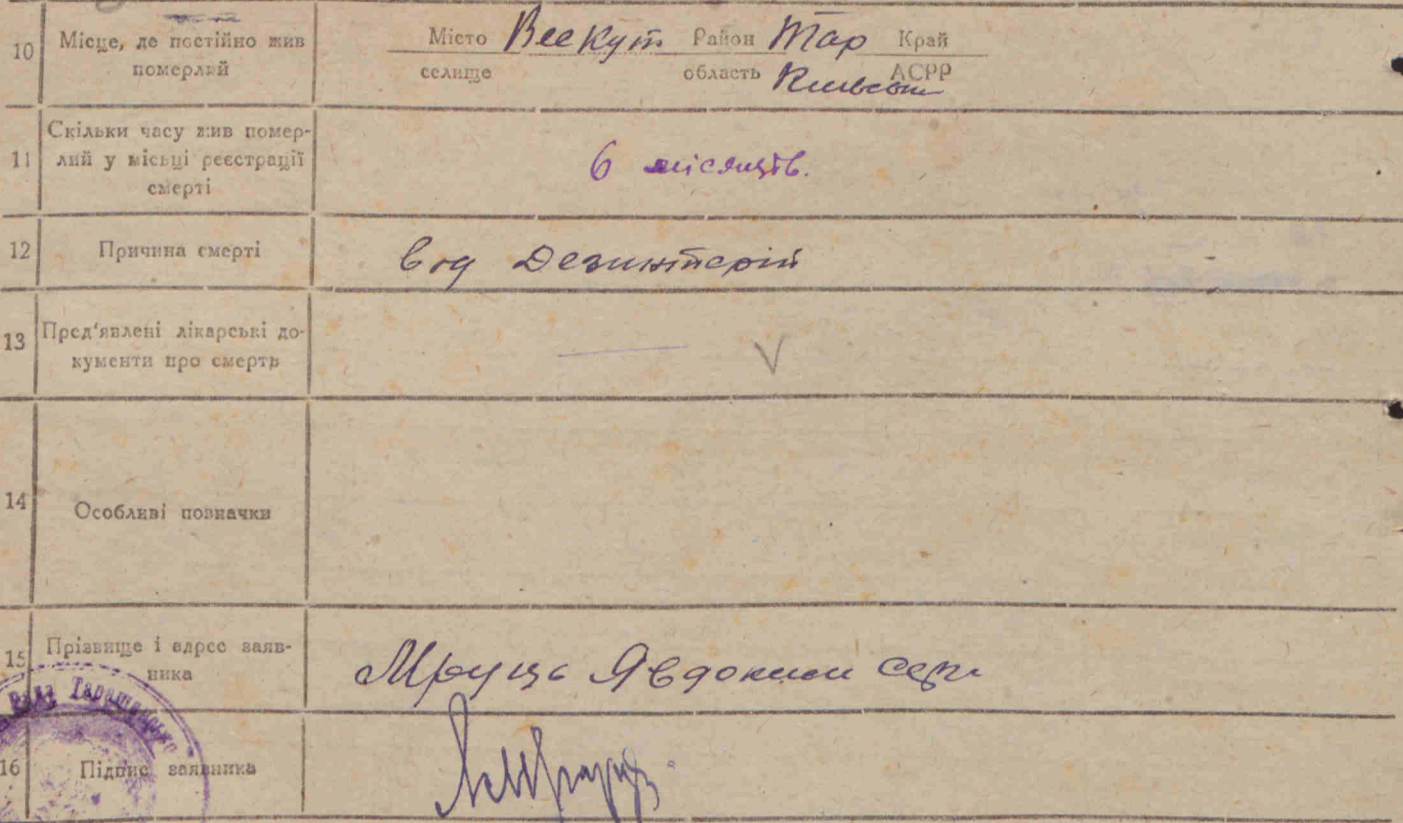 10 Місце, де постійно жив
померлий
Місто Веекут Район Тар Край
селище область Київськ АСРР
11 Скільки часу жив помер-
лий у місьці реєстрації
смерті
6 місяців.
12 Причина смерті
від Дезинтерії
13 Пред'явлені лікарські до-
кументи про смерть
— V
14 Особливі позначки
15 Прізвище і адрес заяв-
ника
Явдокии
16 Підпис заявника
Рада Таращансько